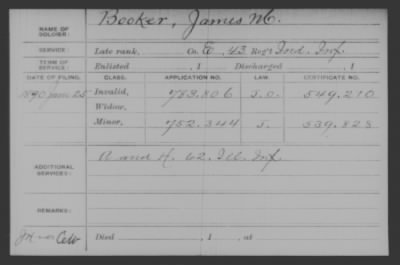 NAME OF SOLDIER: Booker, James M.
SERVICE: Late rank, Co. E, 43 Reg't Ind. Inf.
TERM OF SERVICE: Enlisted , 1 Discharged , 1
DATE OF FILING. CLASS. APPLICATION NO. LAW. CERTIFICATE NO.
1890 Jan 25 Invalid, 753.806 549.210
Widow,
Minor, 752.344 539.828
ADDITIONAL SERVICES: and H. 62. Ill. Inf.
REMARKS:
Died , 1 , at